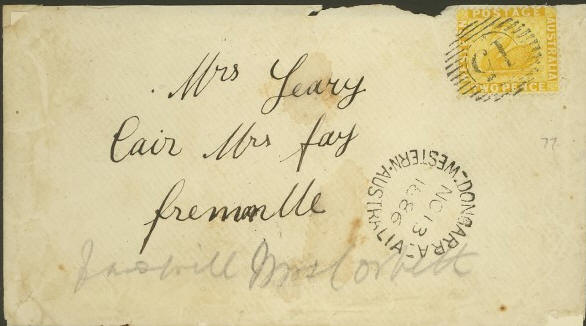 POSTAGE
AUSTRALIA
TWO PENCE
Mrs Leary
Cair Mrs fay
fremantle
DONGARRA-WESTERN-AUSTRALIA
NO 13
1886
77
Mrs Corbett